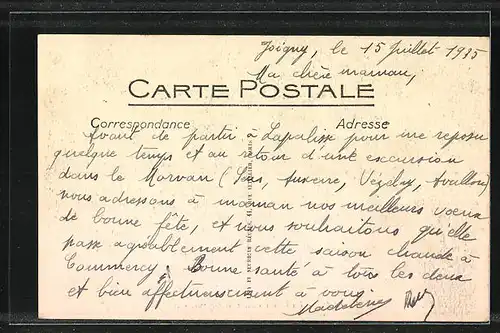 Joigny, le 15 Juillet 1935
Ma chère maman,
CARTE POSTALE
Correspondance
Adresse
Avant de partir à Lapalisse pour me reposer
quelque temps et au retour d'une excursion
dans le Morvan (Sens, Auxerre, Vézelay, Avallon)
nous adressons à maman nos meilleurs voeux
de bonne fête, et nous souhaitons qu'elle
passe agréablement cette saison chaude à
Commercy. Bonne santé à tous les deux
et bien affectueusement à vous.
Madeleine